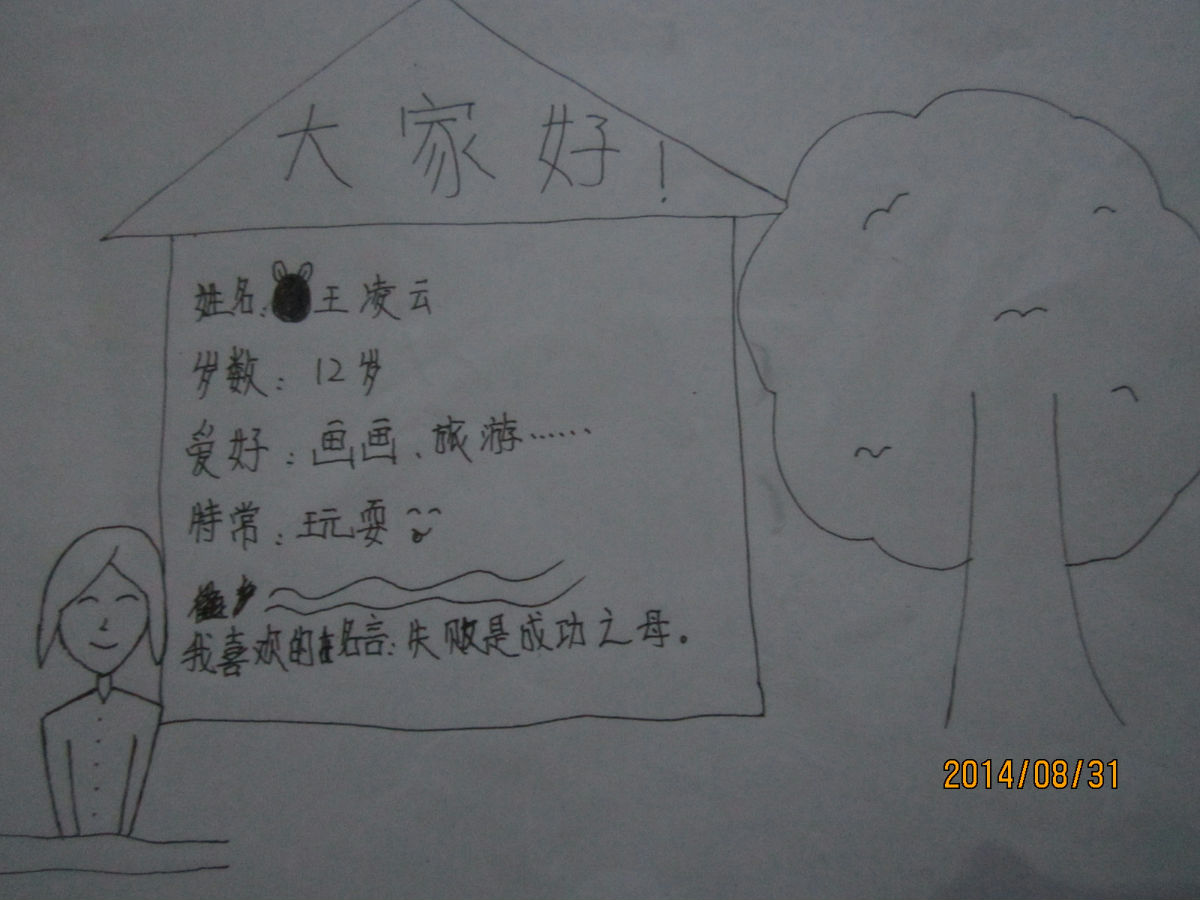 大家好!
姓名:王凌云
岁数:12岁
爱好:画画、旅游……
時常:玩耍
我喜欢的名言:失败是成功之母。
2014/08/31